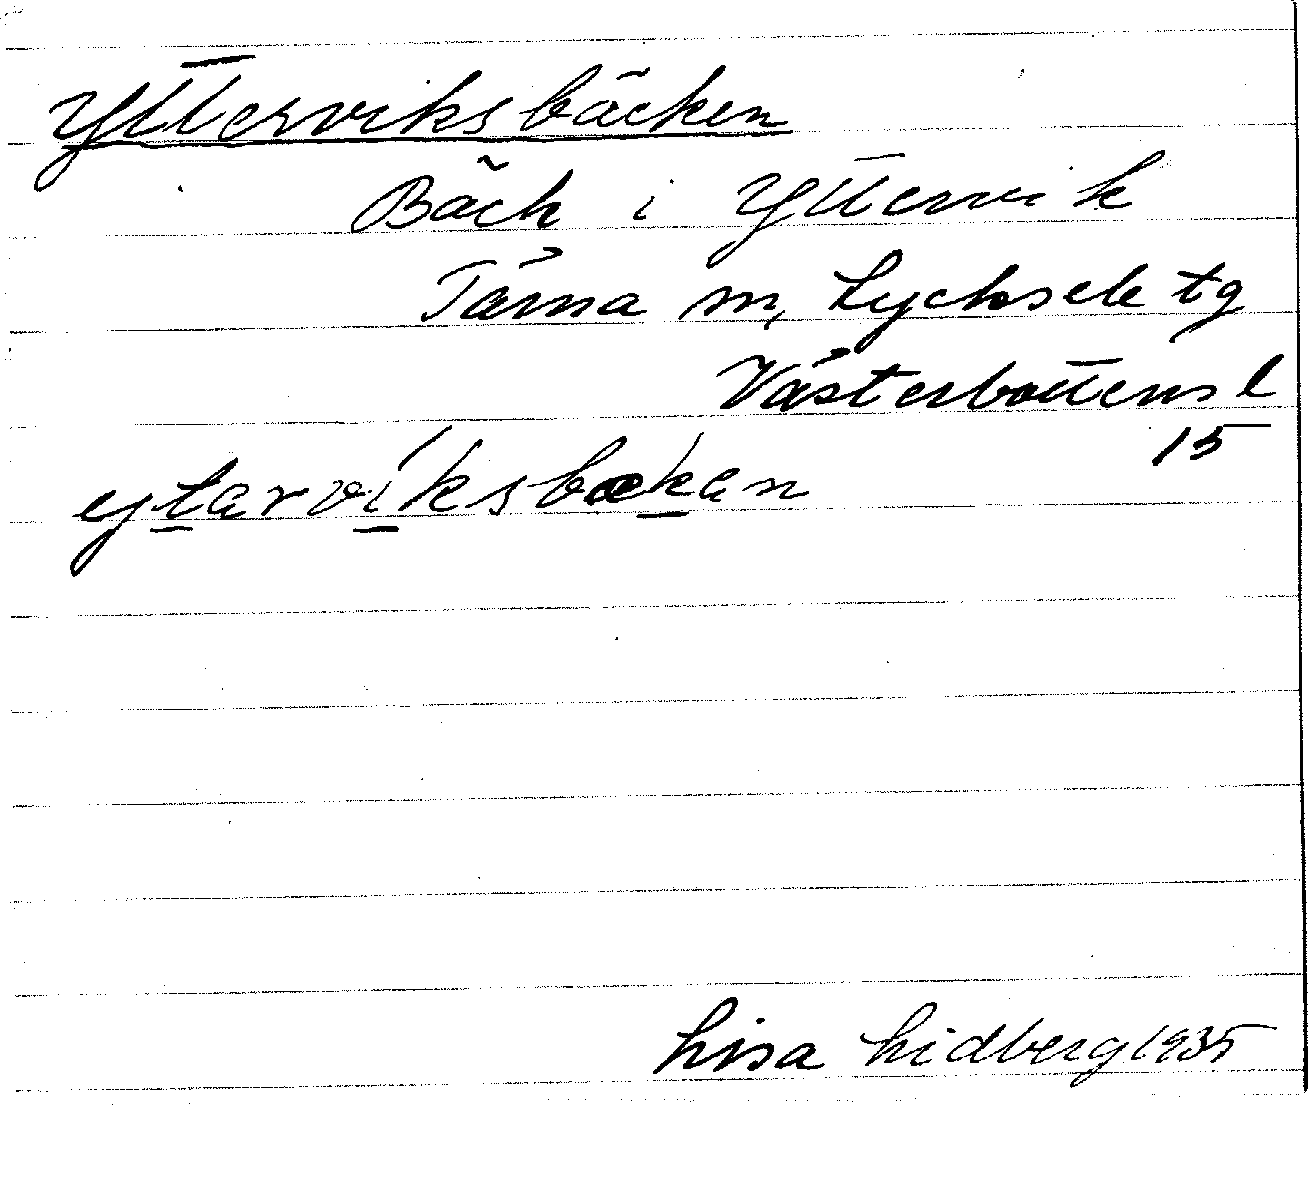 Ytterviksbäcken
Bäck i Yttervik
Tärna sn, Lycksele tg
Västerbottens l
15
ytarviksbækan
Lisa Lidberg 1935